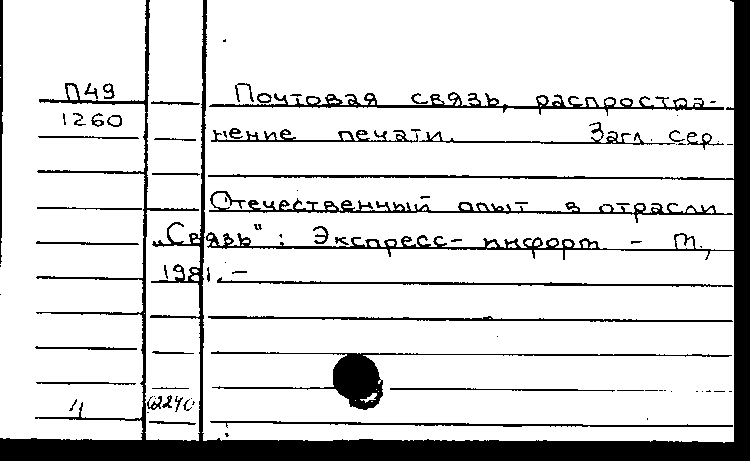 П49
1260
Почтовая связь, распростра-
нение печати. Загл. сер.
Отечественный опыт в отрасли
„Связь": Экспресс-информ. - М.,
1981. -
02240